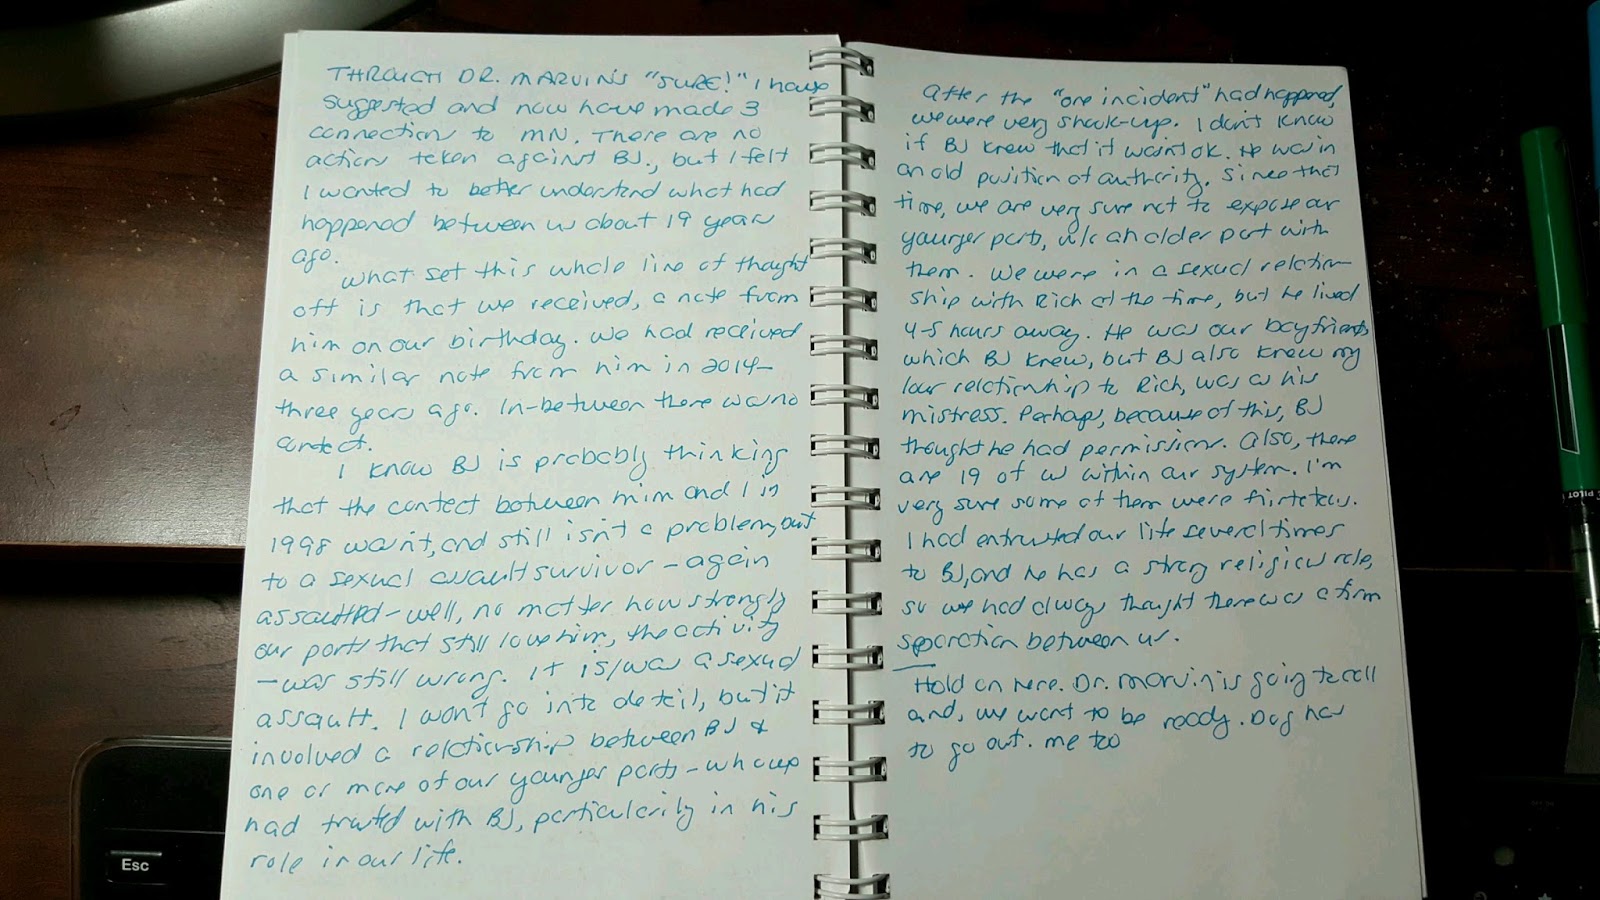 THROUGH DR. MARVIN'S "SURE!" I have
suggested and now have made 3
connection to MN. There are no
action taken against BJ., but I felt
I wanted to better understand what had
happened between us about 19 years
ago.
What set this whole line of thought
off is that we received, a note from
him on our birthday. We had received
a similar note from him in 2014—
three years ago. In-between there was no
contact.
I know BJ is probably thinking
that the contact between him and I in
1998 wasn't, and still isn't a problem, but
to a sexual assault survivor – again
assaulted – well, no matter how strongly
our parts that still love him, the activity
– was still wrong. It is/was a sexual
assault. I won't go into detail, but it
involved a relationship between BJ &
one or more of our younger parts – who
had trusted with BJ, particularily in his
role in our life.
After the "one incident" had happened,
we were very shook-up. I don't know
if BJ knew that it wasn't ok. He was in
an old position of authority. Since that
time, we are very sure not to expose our
younger parts, w/o an older part with
them. We were in a sexual relation-
ship with Rich at the time, but he lived
4-5 hours away. He was our boyfriend,
which BJ knew, but BJ also knew my
our relationship to Rich, was as his
mistress. Perhaps, because of this, BJ
thought he had permission. Also, there
are 19 of us within our system. I'm
very sure some of them were
I had entrusted our life several times
to BJ, and he has a strong religious role,
so we had always thought there was a firm
separation between us.
Hold on here. Dr. Marvin is going to call
and, we want to be ready. Dog has
to go out. me too
Esc
PILOT